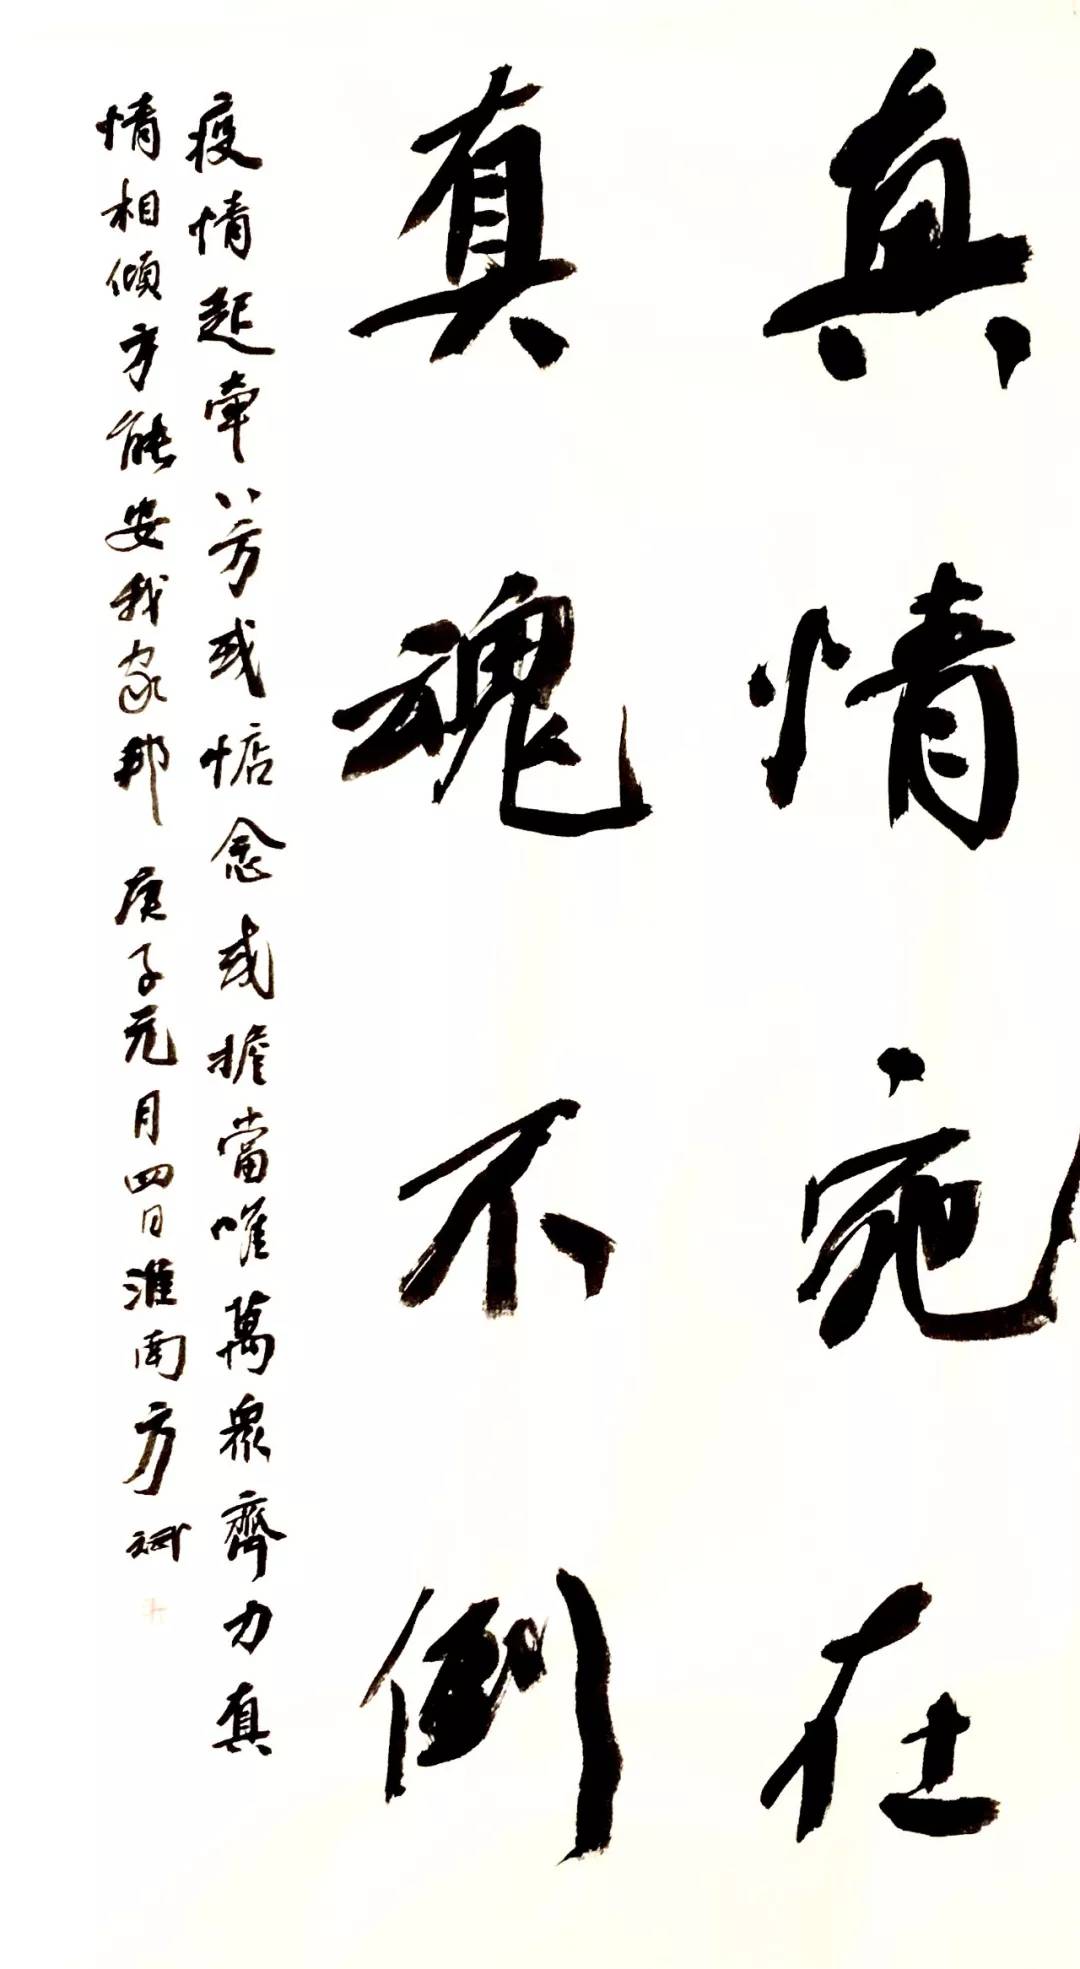 真情宛在
真魂不倒
疫情起牽八方或惦念或擔當唯萬眾齊力真
情相傾方能安我家邦 庚子元月四日淮南方斌